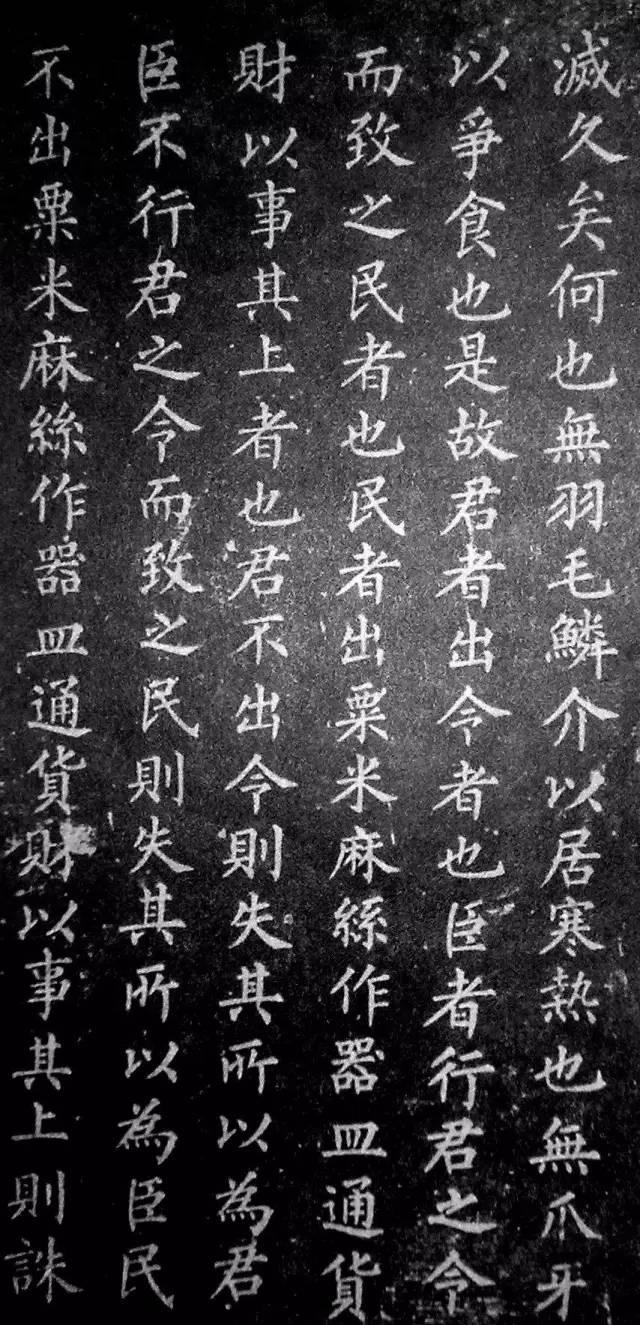 滅久矣何也無羽毛鱗介以居寒熱也無爪牙
以爭食也是故君者出令者也臣者行君之令
而致之民者也民者出粟米麻絲作器皿通貨
財以事其上者也君不出令則失其所以為君
臣不行君之令而致之民則失其所以為臣民
不出粟米麻絲作器皿通貨財以事其上則誅